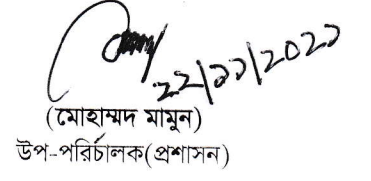 ২২/১১/২০২১
(মোহাম্মদ মামুন)
উপ-পরিচালক(প্রশাসন)